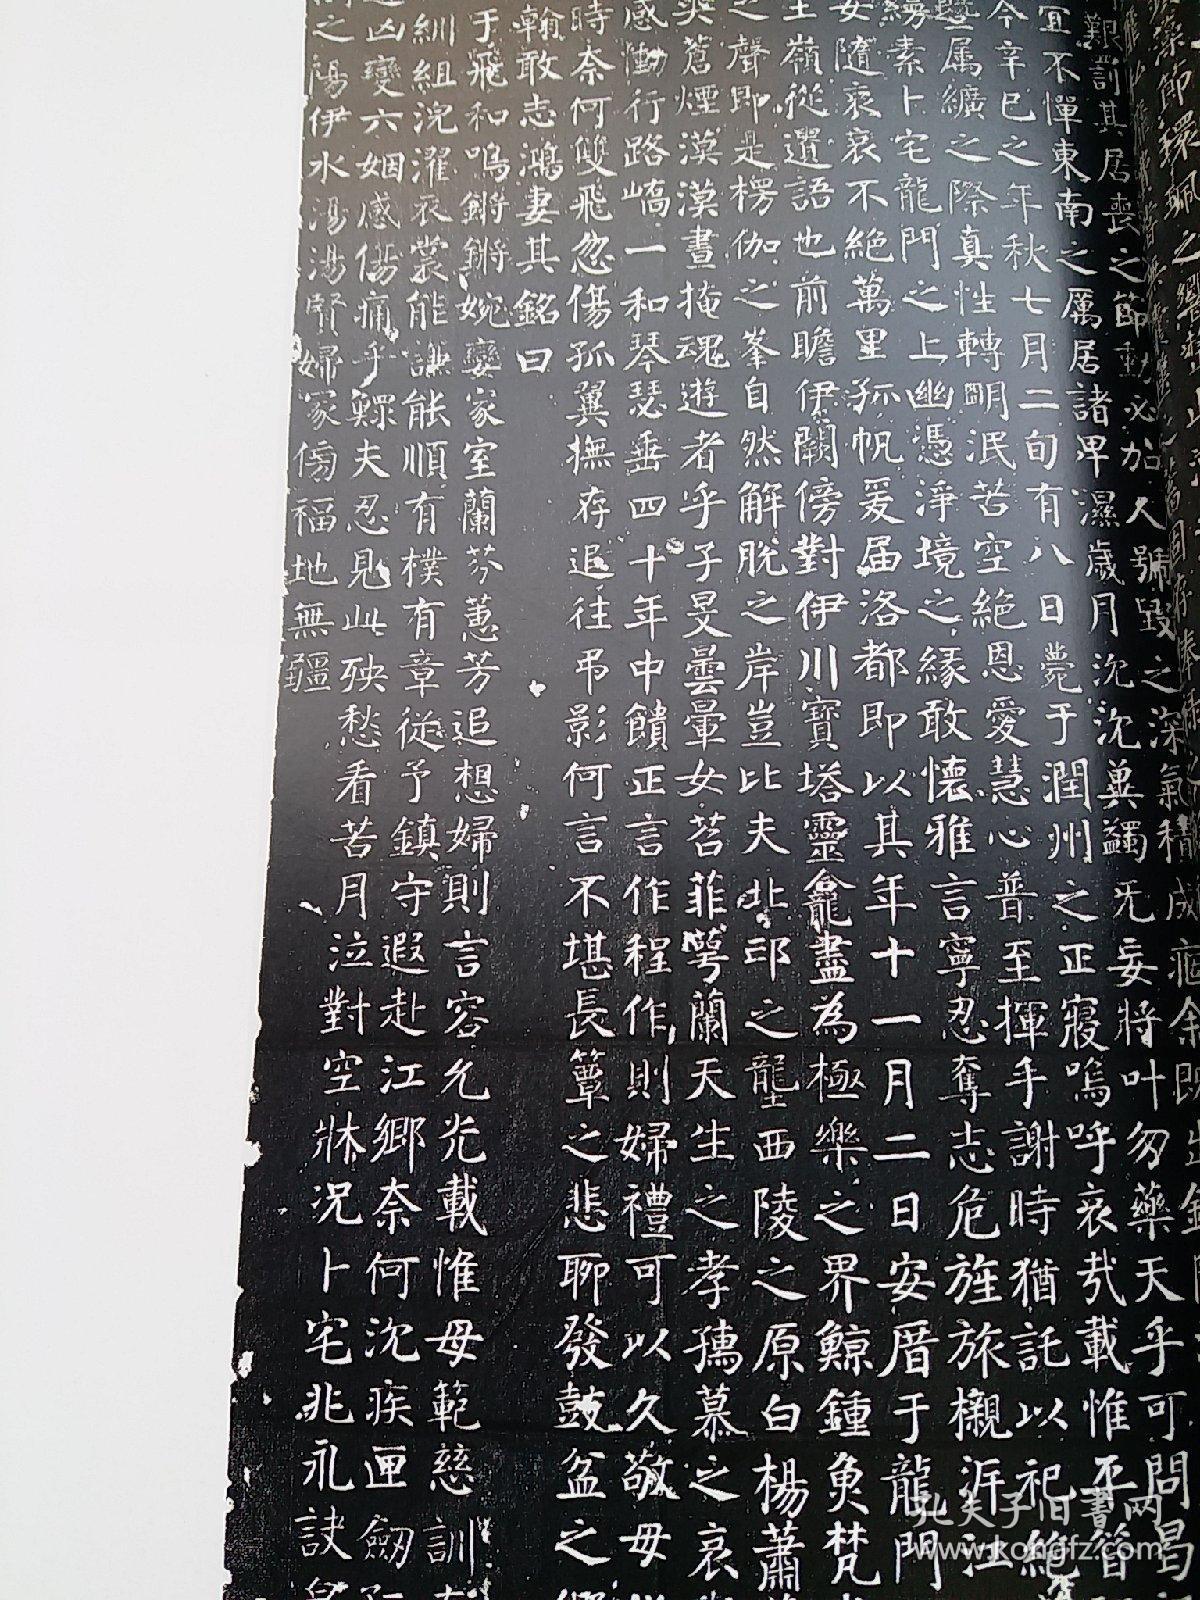 艱罰其居喪之節動必加人號毀之深氣積成疴余既
宜不憚東南之厲居諸卑濕歲月沈沈冀蠲无妄將叶勿藥天乎可問曷
今辛巳之年秋七月二旬有八日薨于潤州之正寢嗚呼哀哉載惟平昔
暨属纊之際真性轉明泯苦空絶恩愛慧心普至揮手謝時猶託以祀絶
縵素卜宅龍門之上幽憑淨境之緣敢懷雅言寧忍奪志危旌旅櫬泝江
安隨哀哀不絶萬里孤帆爰届洛都即以其年十一月二日安厝于龍門
嶺從遺語也前瞻伊闕傍對伊川寶塔靈龕盡為極樂之界鯨鍾魚梵
之聲即是楞伽之峯自然解脱之岸豈比夫北邙之壟西陵之原白楊蕭
蒼煙漠漠晝掩魂遊者乎子旻曇暈女苕菲萼蘭天生之孝孺慕之哀
感慟行路嶠一和琴瑟垂四十年中饋正言作程作則婦禮可以久敬毋
時奈何雙飛忽傷孤翼撫存追往弔影何言不堪長簟之悲聊發鼓盆之
翰敢志鴻妻其銘曰
于飛和鳴鏘鏘婉孌家室蘭芬蕙芳追想婦則言容允光載惟母範慈訓
紃組浣濯衣裳能謙能順有樸有章從予鎮守遐赴江郷奈何沈疾匣劒
凶變六姻感傷痛乎鰥夫忍見此殃愁看苦月泣對空牀况卜宅兆永訣
之陽伊水湯湯賢婦冢傍福地無疆
孔夫子旧書网
www.kongfz.com